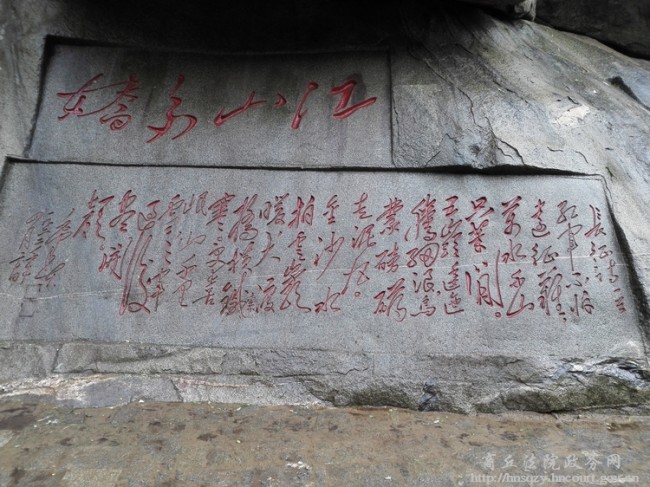 江山多嬌
長征詩一首
红軍不怕
遠征難
萬水千山
只等閒。
五嶺逶迤
腾细浪烏
蒙磅礴
走泥丸。
金沙水
拍雲崖
暖大渡
橋横鐵索
寒。更喜
岷山千里
雪三軍
過後
盡開
顔
毛泽东
商丘法院政务网
http://hnsqzy.hncourt.gov.cn